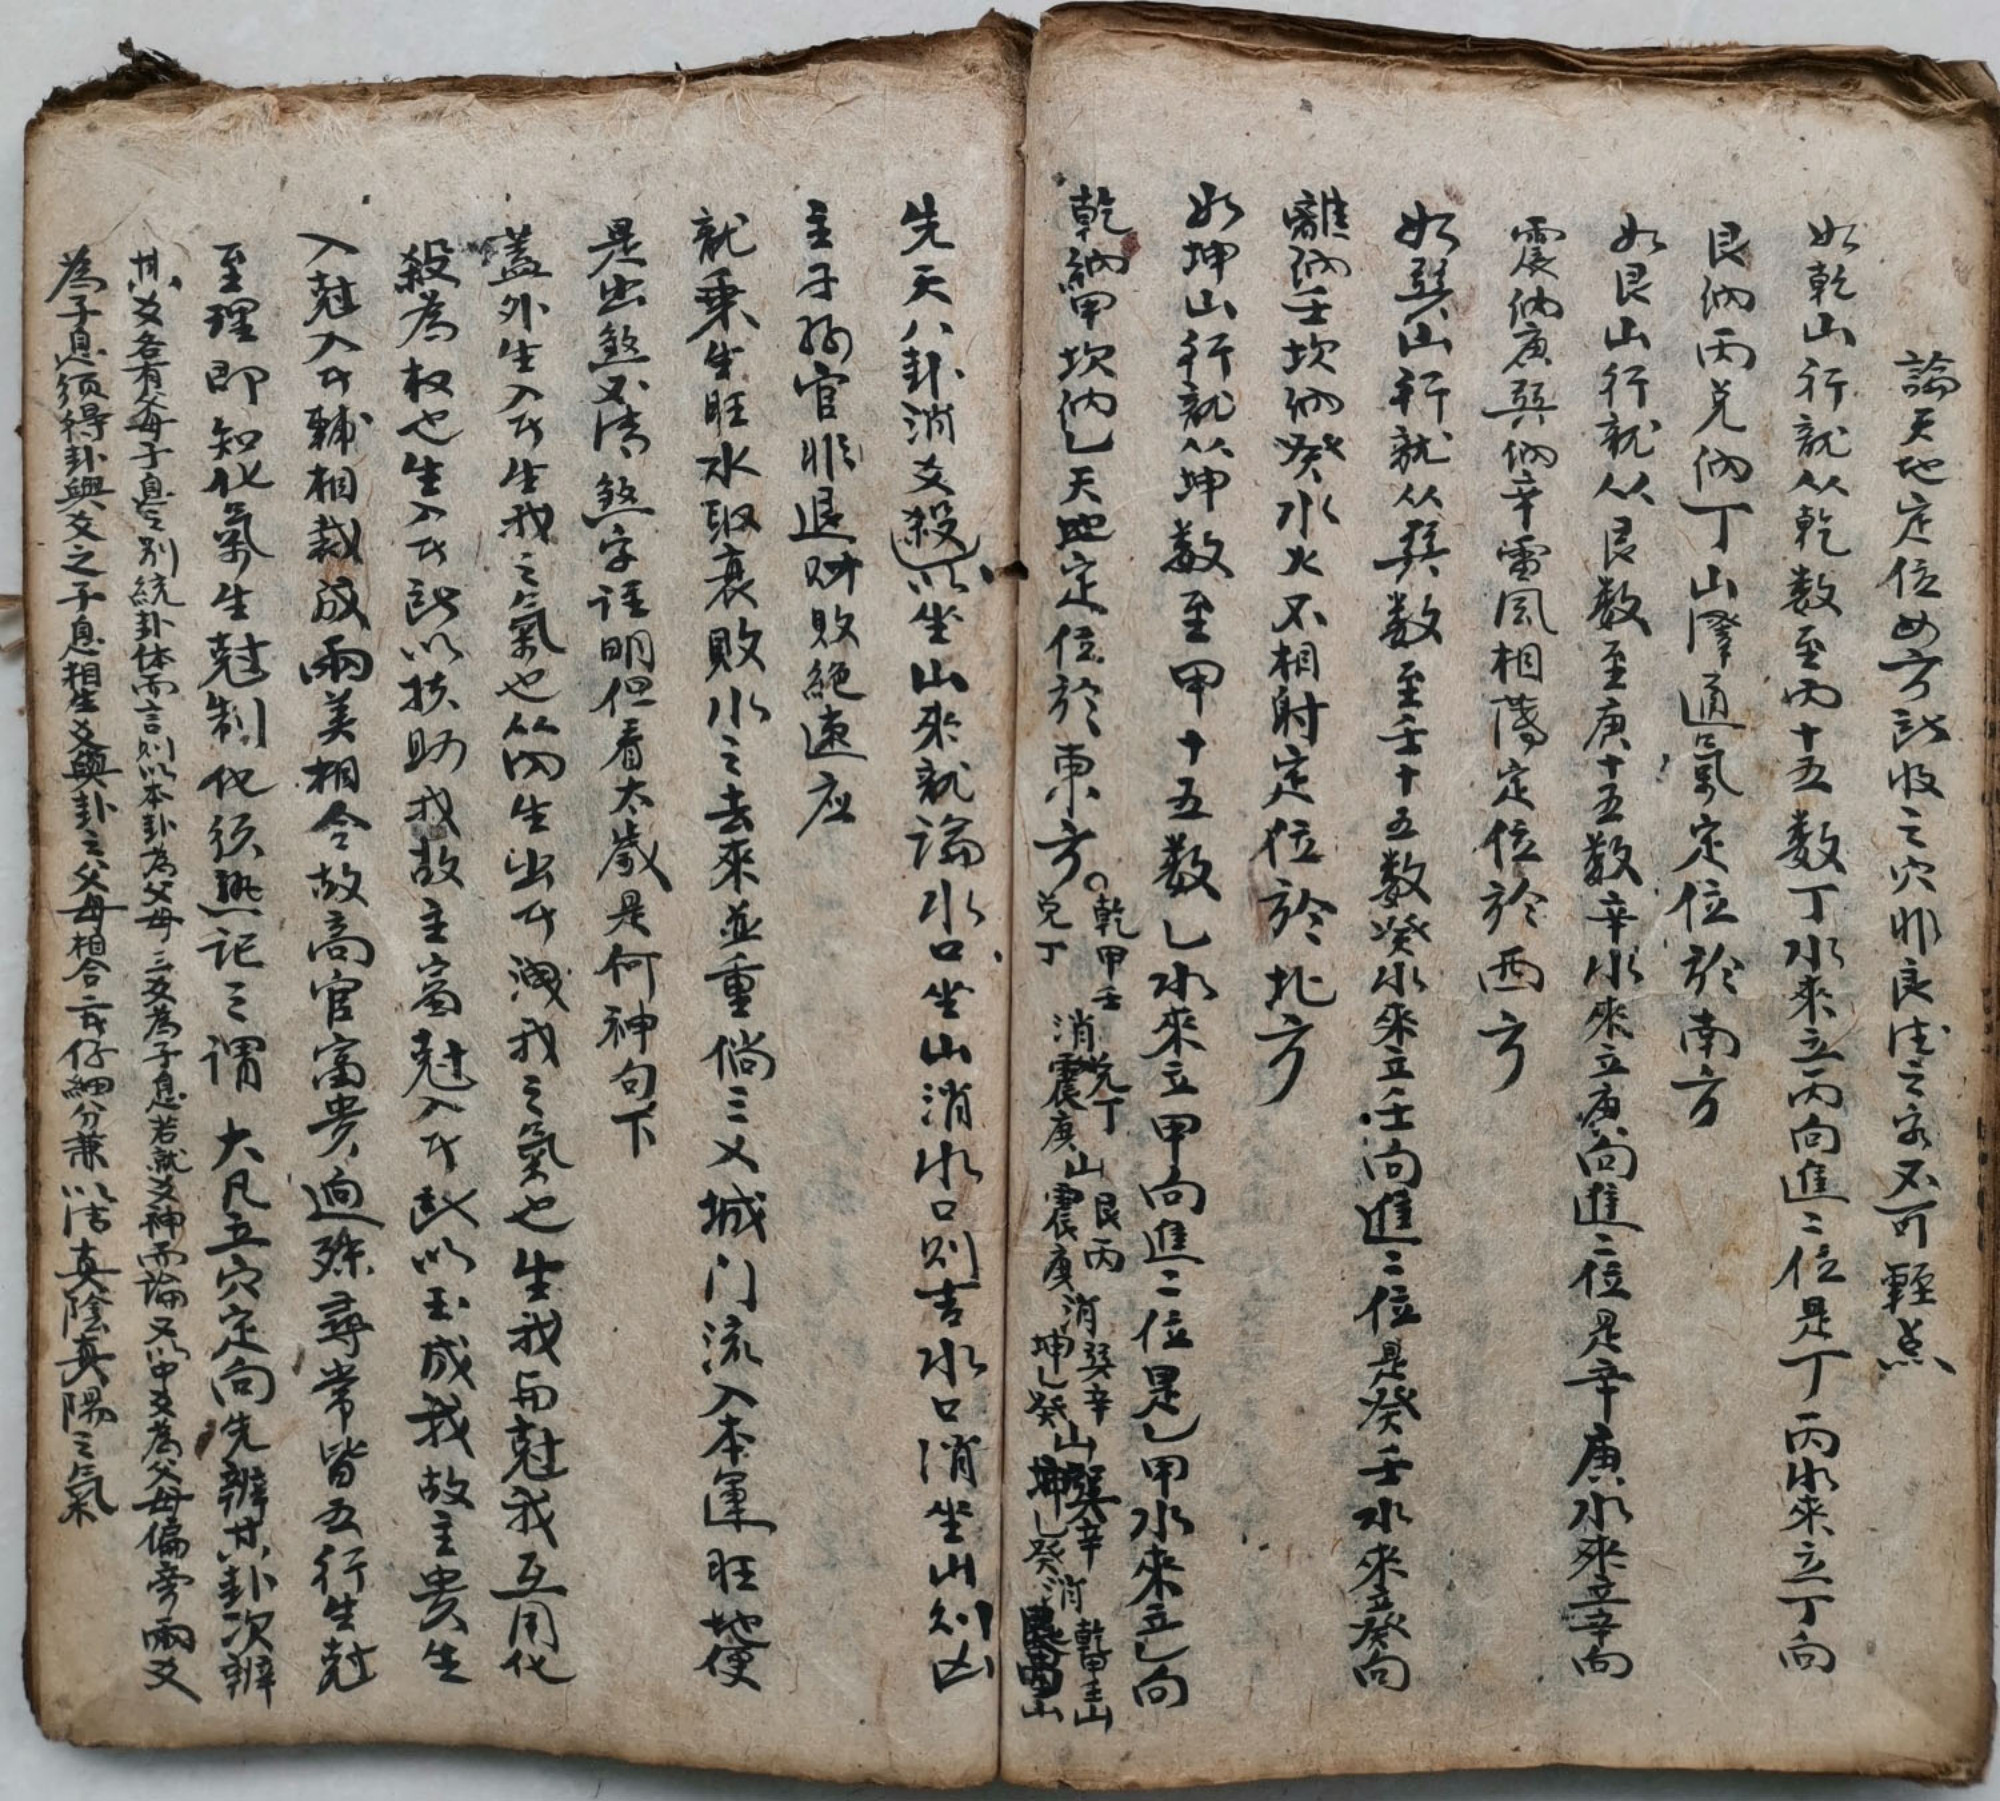 論天地定位四方既收之穴非良法之家不可輕点
如乾山行龍从乾数至丙十五数丁水來立丙向進二位是丁丙水來立丁向
艮納丙兑納丁山澤通氣定位於南方
如艮山行龍从艮数至庚十五数辛水來立庚向進二位是辛庚水來立辛向
震納庚巽納辛雷風相薄定位於西方
如巽山行龍从巽数至壬十五数癸水來立壬向進二位是癸壬水來立癸向
離納壬坎納癸水火不相射定位於北方
如坤山行龍从坤数至甲十五数乙水來立甲向進二位是乙甲水來立乙向
乾納甲坎納乙天地定位於東方。乾甲壬兑丁山艮丙消巽辛山巽辛消乾甲壬山
兑丁消震庚震庚坤乙癸坤乙癸山
先天八卦消爻殺以坐山來龍論水口坐山消水口則吉水口消坐山則凶
主子孫官非退財敗絕速应
龍乘生旺水取衰敗水之去來並重倘三义城门流入本運旺地便
是出煞不清煞字註明但看太歲是何神句下
蓋外生入氏生我之氣也从内生出氏洩我之氣也生我与尅我互用化
殺為权也生入氏既以扶助我故主富尅入氏既以玉成我故主贵生
入尅入氏輔相裁成兩美相合故高官富贵逈殊尋常皆五行生尅
至理即知化氣生尅制化须熟记之謂 大凡立穴定向先辦其卦次辨
其爻各有父母子息之别統卦体而言則以本卦為父母三爻為子息若就爻神而論又以中爻為父母偏旁兩爻
為子息须得卦與爻之子息相生爻與卦之父母相合云氏仔細分兼以清真陰真陽之氣